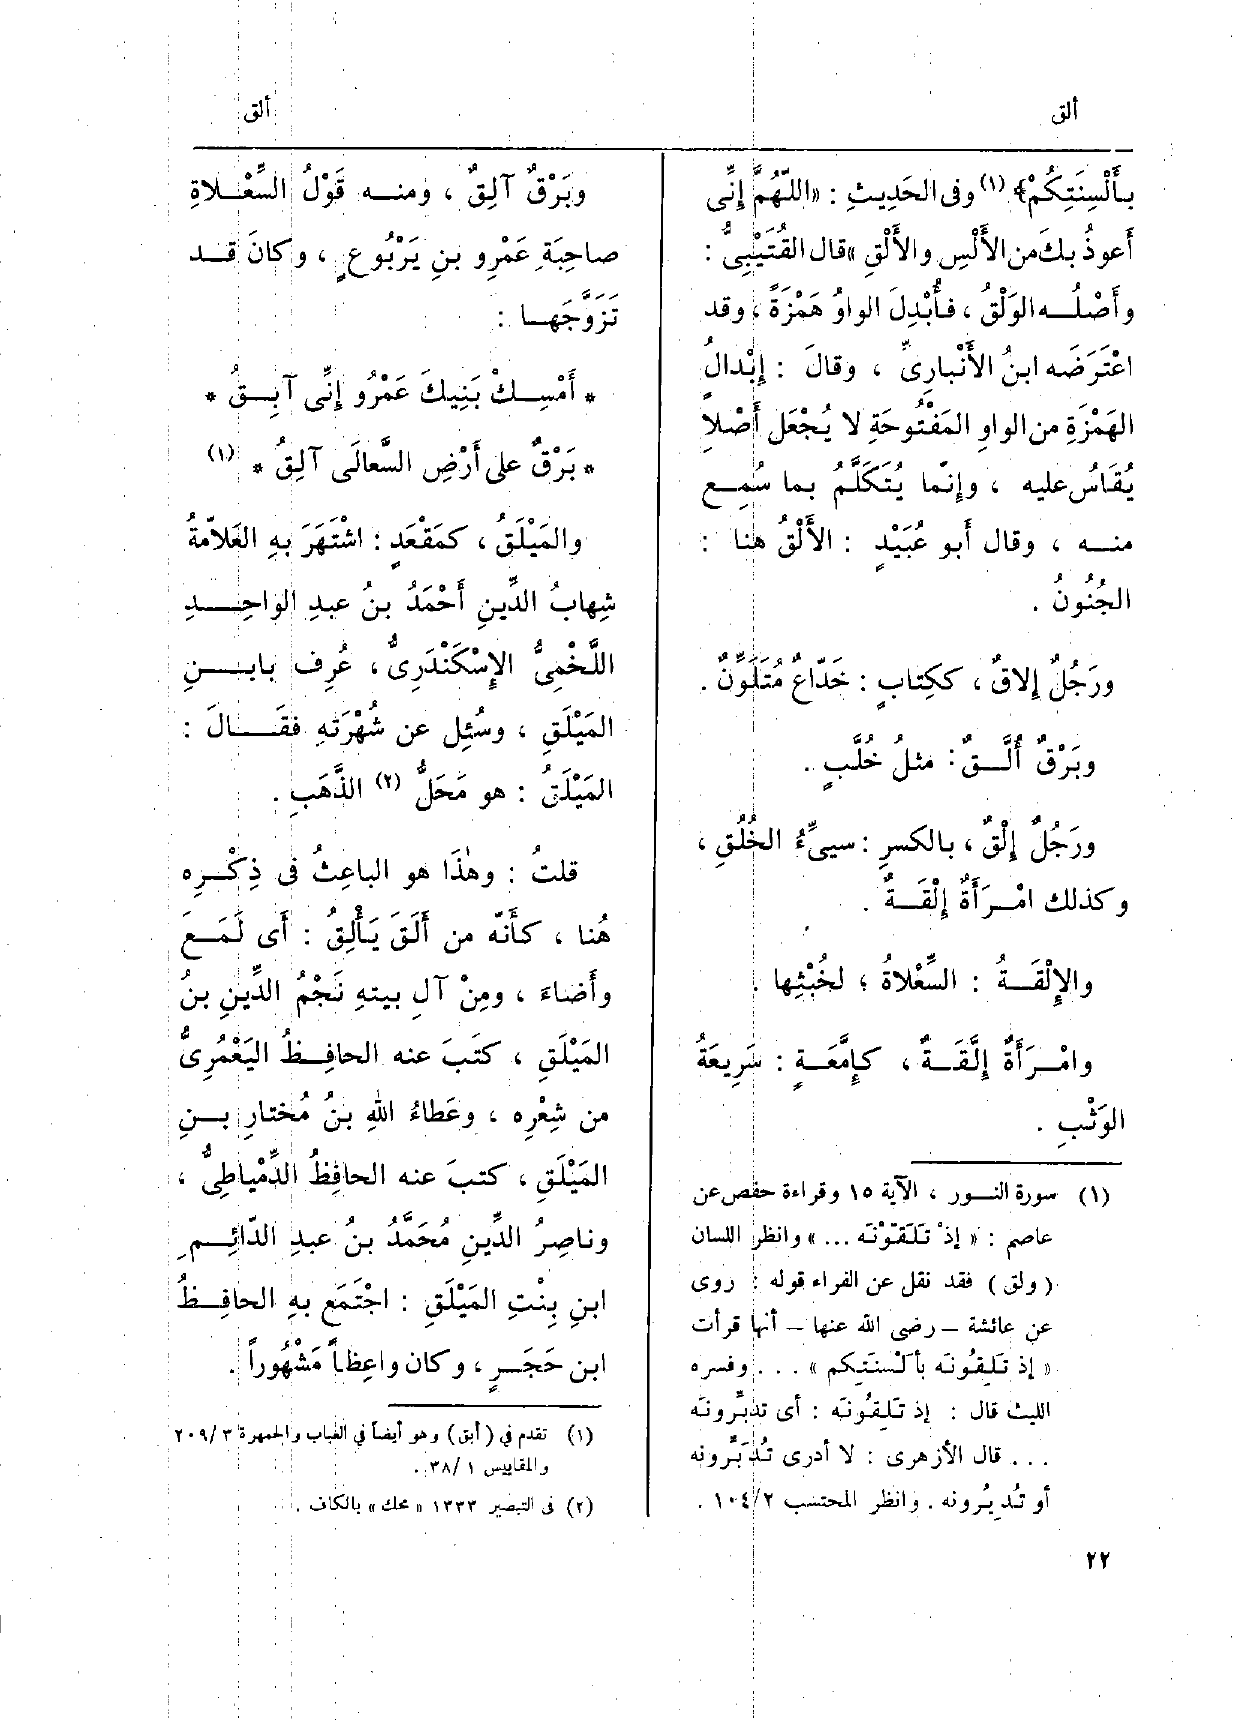 ألق
ألق
بأَلْسِنَتِكُمْ﴾ (١) وفى الحَدِيثِ : «اللّهُمَّ إِنِّى
أَعوذُ بكَ من الأَلْسِ والأَلْقِ» قال القُتَيْبِىُّ :
وأَصْلُـه الوَلْقُ ، فأُبْدِلَ الواوُ هَمْزَةً ، وقد
اعْتَرَضَه ابنُ الأَنْبارِىِّ ، وقالَ : إِبْدالُ
الهَمْزَةِ من الواوِ المَفْتُوحَةِ لا يُجْعَل أَصْلاً
يُقَاسُ عليه ، وإِنّما يُتَكَلَّمُ بما سُمِـع
منـه ، وقال أَبو عُبَيْدٍ : الأَلْقُ هنا :
الجُنُونُ .
ورَجُلٌ إِلاقٌ ، ككِتابٍ : خَدّاعٌ مُتَلَوِّنٌ .
وبَرْقٌ أُلَّـقٌ : مثلُ خُلَّبٍ .
ورَجُلٌ إِلْقٌ ، بالكسرِ : سيىِّءُ الخُلُقِ ،
وكذلك امْـرَأَةٌ إِلْقَـةٌ .
والإِلْقَـةُ : السِّعْلاةُ ، لخُبْثِها .
وامْـرَأَةٌ إِلَّقَـةٌ ، كإِمَّعَـةٍ : سَرِيعَةُ
الوَثْبِ .
(١) سورة النـور ، الآية ١٥ وقراءة حفص عن
عاصم : « إذْ تَلَقَّوْنَه ... » وانظر اللسان
( ولق ) فقد نقل عن الفراء قوله : روى
عن عائشة – رضى الله عنها – أنها قرأت
« إذ تَلِقُونَه بأَلْسنَتِكم » . . . وفسره
الليث قال : إذ تَلِقُونَه : أى تدبِّرونَه
. . . قال الأزهرى : لا أدرى تُدَبِّرونه
أو تُديُرونه . وانظر المحتسب ١٠٤/٢ .
وبَرْقٌ آلِقٌ ، ومنـه قَوْلُ السِّعْـلاةِ
صاحِبَةِ عَمْرِو بنِ يَرْبُوعٍ ، وكانَ قـد
تَزَوَّجَهـا :
* أَمْسِـكْ بَنِيكَ عَمْرُو إِنِّى آبِـقُ *
* بَرْقٌ على أَرْضِ السَّعالَى آلِقُ * (١)
والمَيْلَقُ ، كمَقْعَدٍ : اشْتَهَرَ بهِ العَلاّمةُ
شِهابُ الدِّينِ أَحْمَدُ بنُ عبدِ الواحِـدِ
اللَّخْمِىُّ الإِسْكَنْدَرِىُّ ، عُرِف بابـنِ
المَيْلَقِ ، وسُئِل عن شُهْرَتهِ فقَـالَ :
المَيْلَقُ : هو مَحَلُّ (٢) الذَّهَبِ .
قلتُ : وهٰذَا هو الباعِثُ فى ذِكْـرِه
هُنا ، كأَنّه من أَلَقَ يَأْلِقُ : أَى لَمَـعَ
وأَضاءَ ، ومِنْ آلِ بيتهِ نَجْمُ الدِّينِ بنُ
المَيْلَقِ ، كتَبَ عنه الحافِـظُ اليَعْمُرِىُّ
من شِعْرِه ، وعَطاءُ اللهِ بنُ مُختارِ بـنِ
المَيْلَقِ ، كتبَ عنه الحافِظُ الدِّمْياطِىُّ ،
وناصِرُ الدِّينِ مُحَمَّدُ بنُ عبدِ الدّائِـمِ
ابنِ بِنْتِ المَيْلَقِ : اجْتَمَع بهِ الحافِـظُ
ابن حَجَـرٍ ، وكان واعِظاً مَشْهُوراً .
(١) تقدم في ( أبق ) وهو أيضاً في العباب والجمهرة ٢٠٩/٣
والمقاييس ٣٨/١ .
(٢) فى التبصير ١٣٣٣ « محك » بالكاف .
٢٢